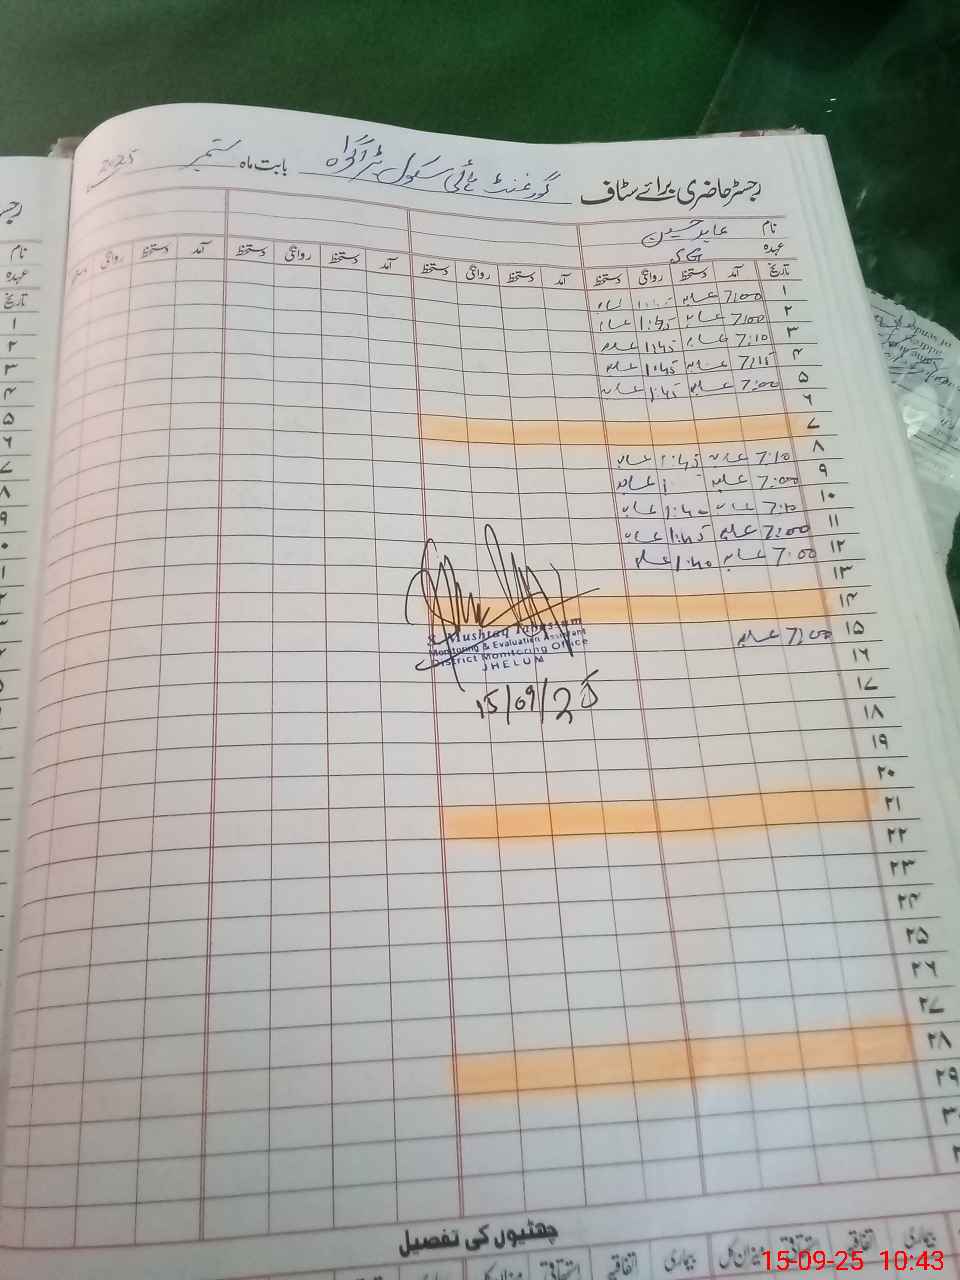 رجسٹر حاضری برائے سٹاف گورنمنٹ ہائی سکول بابت ماہ ستمبر 2025
نام عابد حسین
عہدہ
تاریخ آمد دستخط روانگی دستخط آمد دستخط روانگی دستخط آمد دستخط روانگی دستخط آمد دستخط روانگی
۱ 7:00 عابد
۲ 7:00 عابد 1:45 عابد
۳ 7:10 عابد 1:45 عابد
۴ 7:15 عابد 1:45 عابد
۵ 7:00 عابد 1:45 عابد
۶
۷
۸ 7:10 عابد 1:45 عابد
۹ 7:00 عابد عابد
۱۰ عابد 1:40 عابد
۱۱ 7:00 عابد 1:45 عابد
۱۲ 7:00 عابد 1:40 عابد
۱۳
۱۴
۱۵ 7:00 عابد
S. Mushtaq
Monitoring & Evaluation Assistant
District Monitoring Office
JHELUM
15/09/25
۱۶
۱۷
۱۸
۱۹
۲۰
۲۱
۲۲
۲۳
۲۴
۲۵
۲۶
۲۷
۲۸
۲۹
۳۰
چھٹیوں کی تفصیل
بیماری اتفاقیہ استحقاقی میزان کل بیماری اتفاقیہ استحقاقی
15-09-25 10:43